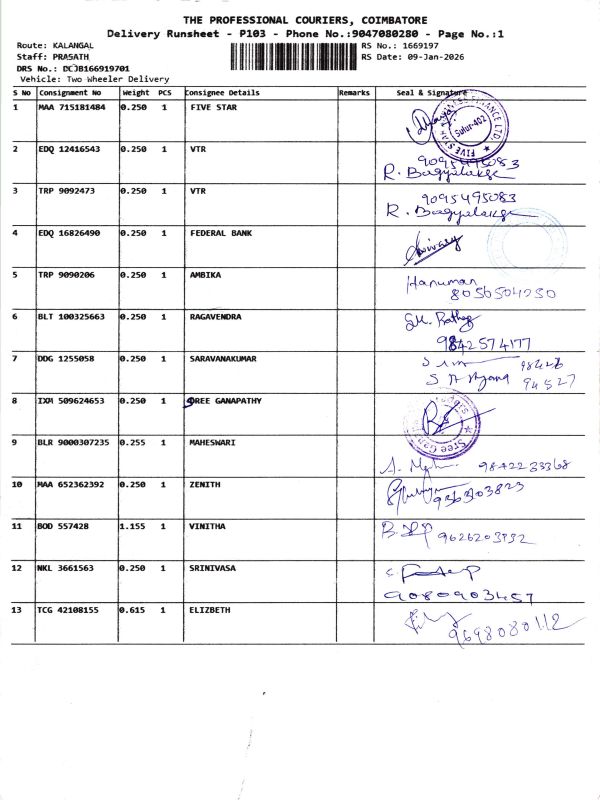 THE PROFESSIONAL COURIERS, COIMBATORE
Delivery Runsheet - P103 - Phone No.:9047080280 - Page No.:1
Route: KALANGAL
Staff: PRASATH
DRS No.: DCJB166919701
Vehicle: Two Wheeler Delivery
RS No.: 1669197
RS Date: 09-Jan-2026
S No Consignment No Weight PCS Consignee Details Remarks Seal & Signature
1 MAA 715181484 0.250 1 FIVE STAR
FINANCE LTD. Sulur-402 FIVE STAR
2 EDQ 12416543 0.250 1 VTR
9095495083
R. Bagyalakge
3 TRP 9092473 0.250 1 VTR
9095495083
R. Bagyalakge
4 EDQ 16826490 0.250 1 FEDERAL BANK
5 TRP 9090206 0.250 1 AMBIKA
Hanuman
8056504250
6 BLT 100325663 0.250 1 RAGAVENDRA
9842574177
7 DDG 1255058 0.250 1 SARAVANAKUMAR
98428
94527
8 IXM 509624653 0.250 1 SREE GANAPATHY
Sree Gan
9 BLR 9000307235 0.255 1 MAHESWARI
9842233368
10 MAA 652362392 0.250 1 ZENITH
9363303823
11 BOD 557428 1.155 1 VINITHA
9626203932
12 NKL 3661563 0.250 1 SRINIVASA
9080903457
13 TCG 42108155 0.615 1 ELIZBETH
9698080112